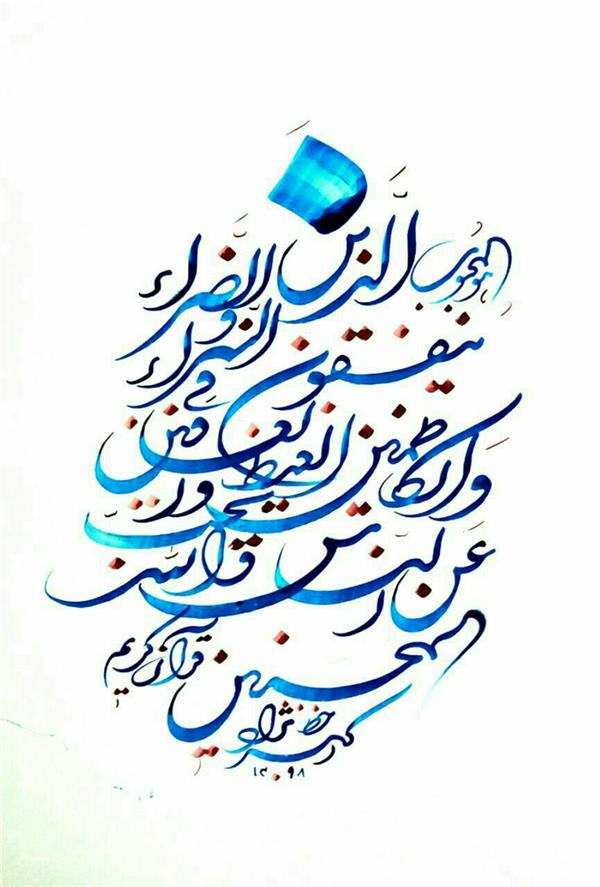 هوالمحبوب
الَّذین
ینفقون فی السَّراء
و الضَّراء
والکاظمین الغیظ
والعافین
عَن الناس والله
یحب
المحسنین
قرآن کریم
نژاد
۱۳۹۸